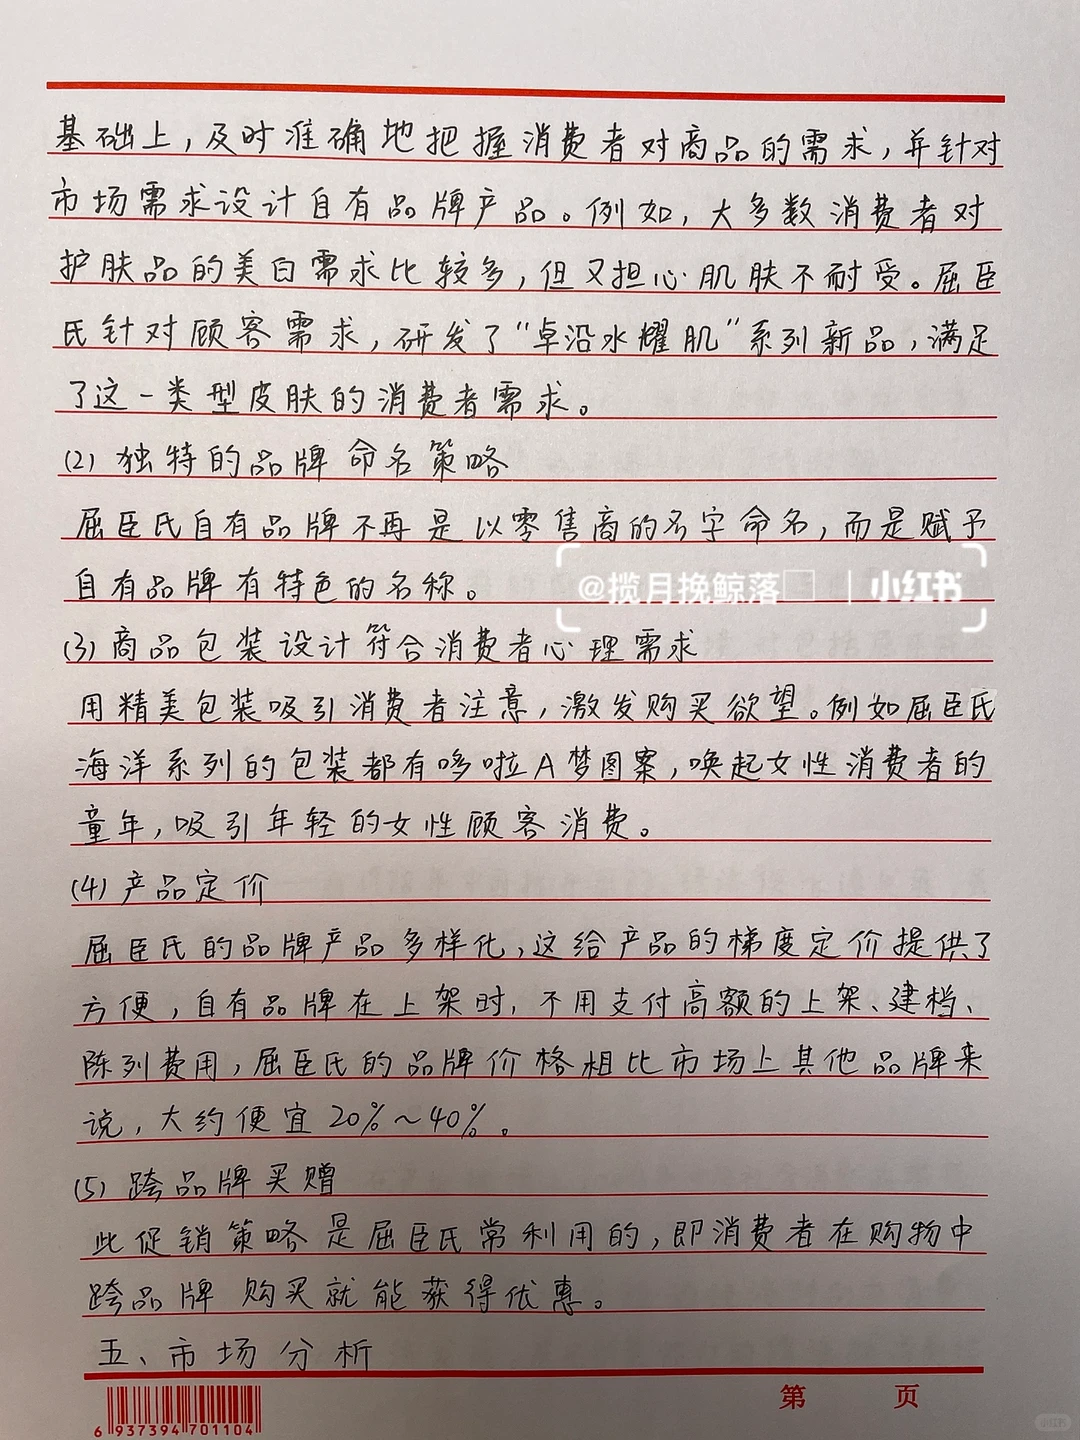 基础上，及时准确地把握消费者对商品的需求，并针对
市场需求设计自有品牌产品。例如，大多数消费者对
护肤品的美白需求比较多，但又担心肌肤不耐受。屈臣
氏针对顾客需求，研发了“卓沿水耀肌”系列新品，满足
了这一类型皮肤的消费者需求。
(2) 独特的品牌命名策略
屈臣氏自有品牌不再是以零售商的名字命名，而是赋予
自有品牌有特色的名称。
@揽月挽鲸落
小红书
(3) 商品包装设计符合消费者心理需求
用精美包装吸引消费者注意，激发购买欲望。例如屈臣氏
海洋系列的包装都有哆啦A梦图案，唤起女性消费者的
童年，吸引年轻的女性顾客消费。
(4) 产品定价
屈臣氏的品牌产品多样化，这给产品的梯度定价提供了
方便，自有品牌在上架时，不用支付高额的上架、建档、
陈列费用，屈臣氏的品牌价格相比市场上其他品牌来
说，大约便宜20%～40%。
(5) 跨品牌买赠
此促销策略是屈臣氏常利用的，即消费者在购物中
跨品牌购买就能获得优惠。
五、市场分析
6 937394 701104
第 页
小红书